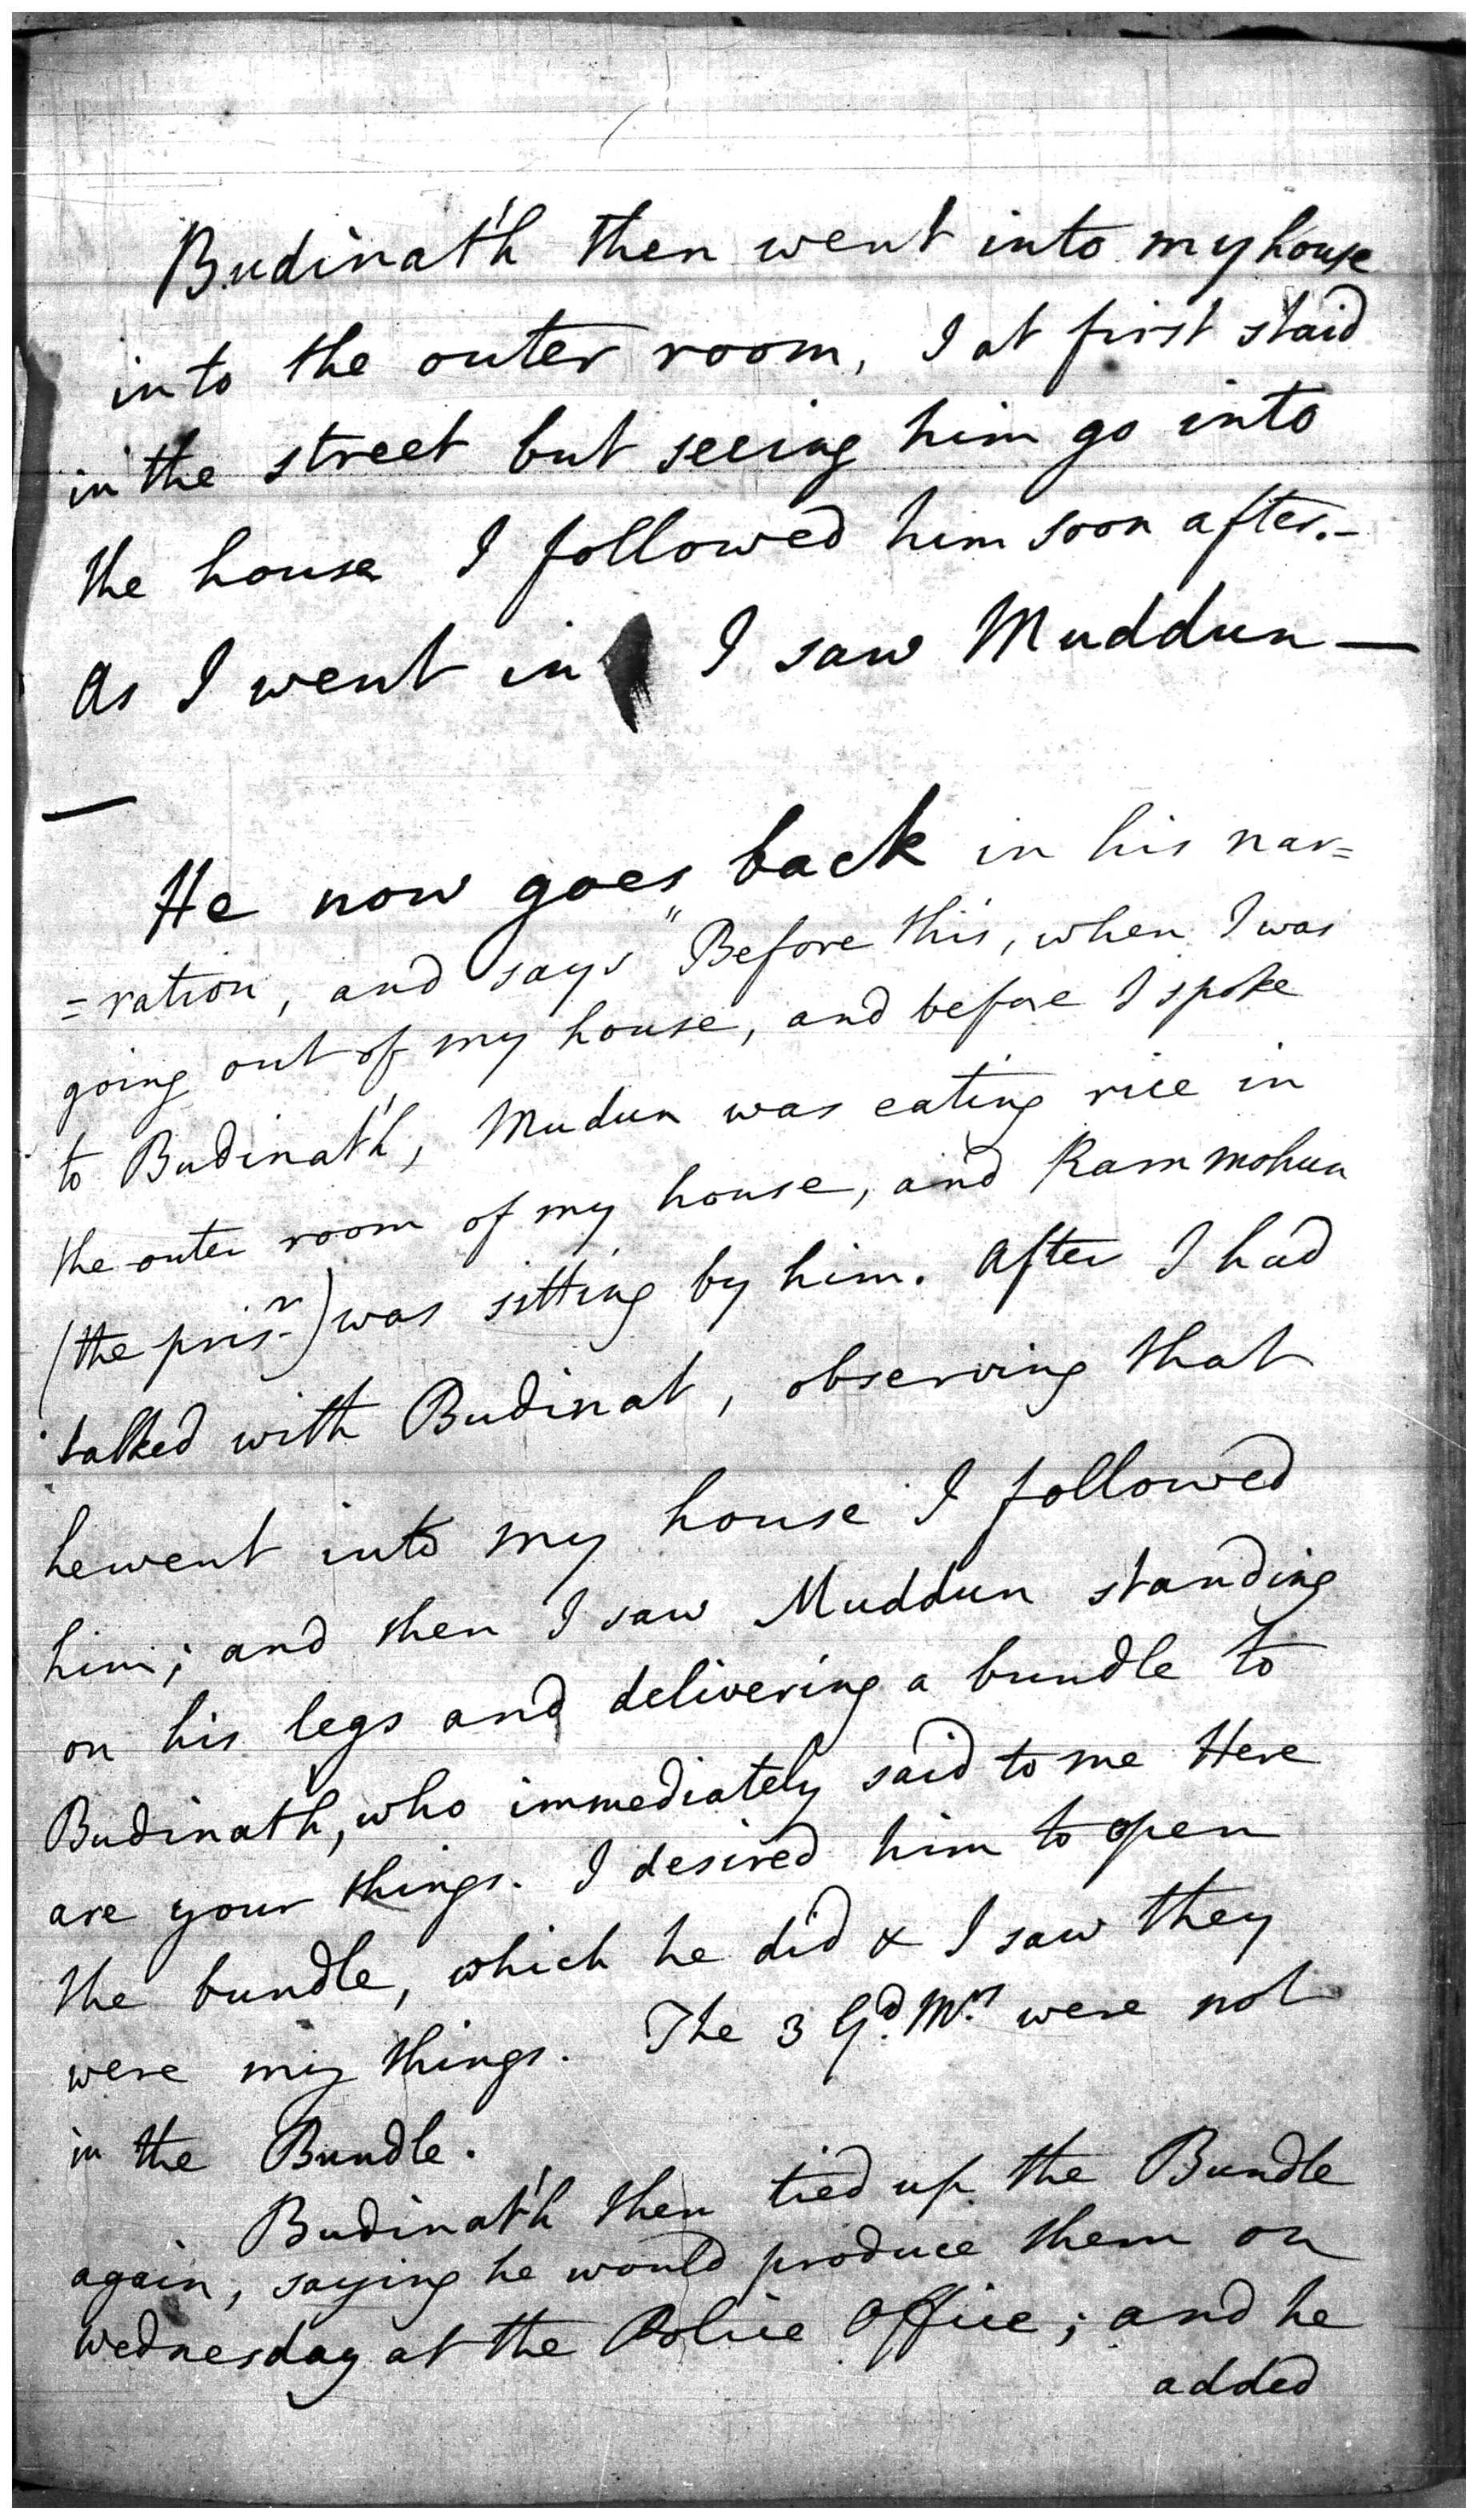 Budinat'h then went into my house
into the outer room, I at first staid
in the street but seeing him go into
the house I followed him soon after.-
As I went in I saw Muddun —
—
He now goes back in his nar=
=ration, and says "Before this, when I was
going out of my house, and before I spoke
to Budinat'h, Mudun was eating rice in
the outer room of my house, and Rammohun
(the pris.r) was sitting by him. After I had
talked with Budinat, observing that
he went into my house I followed
him; and then I saw Muddun standing
on his legs and delivering a bundle to
Budinat'h, who immediately said to me Here
are your things. I desired him to open
the bundle, which he did & I saw they
were my things. The 3 Gd. Mrs were not
in the Bundle.
Budinat'h then tied up the Bundle
again, saying he would produce them on
Wednesday at the Police Office; and he
added